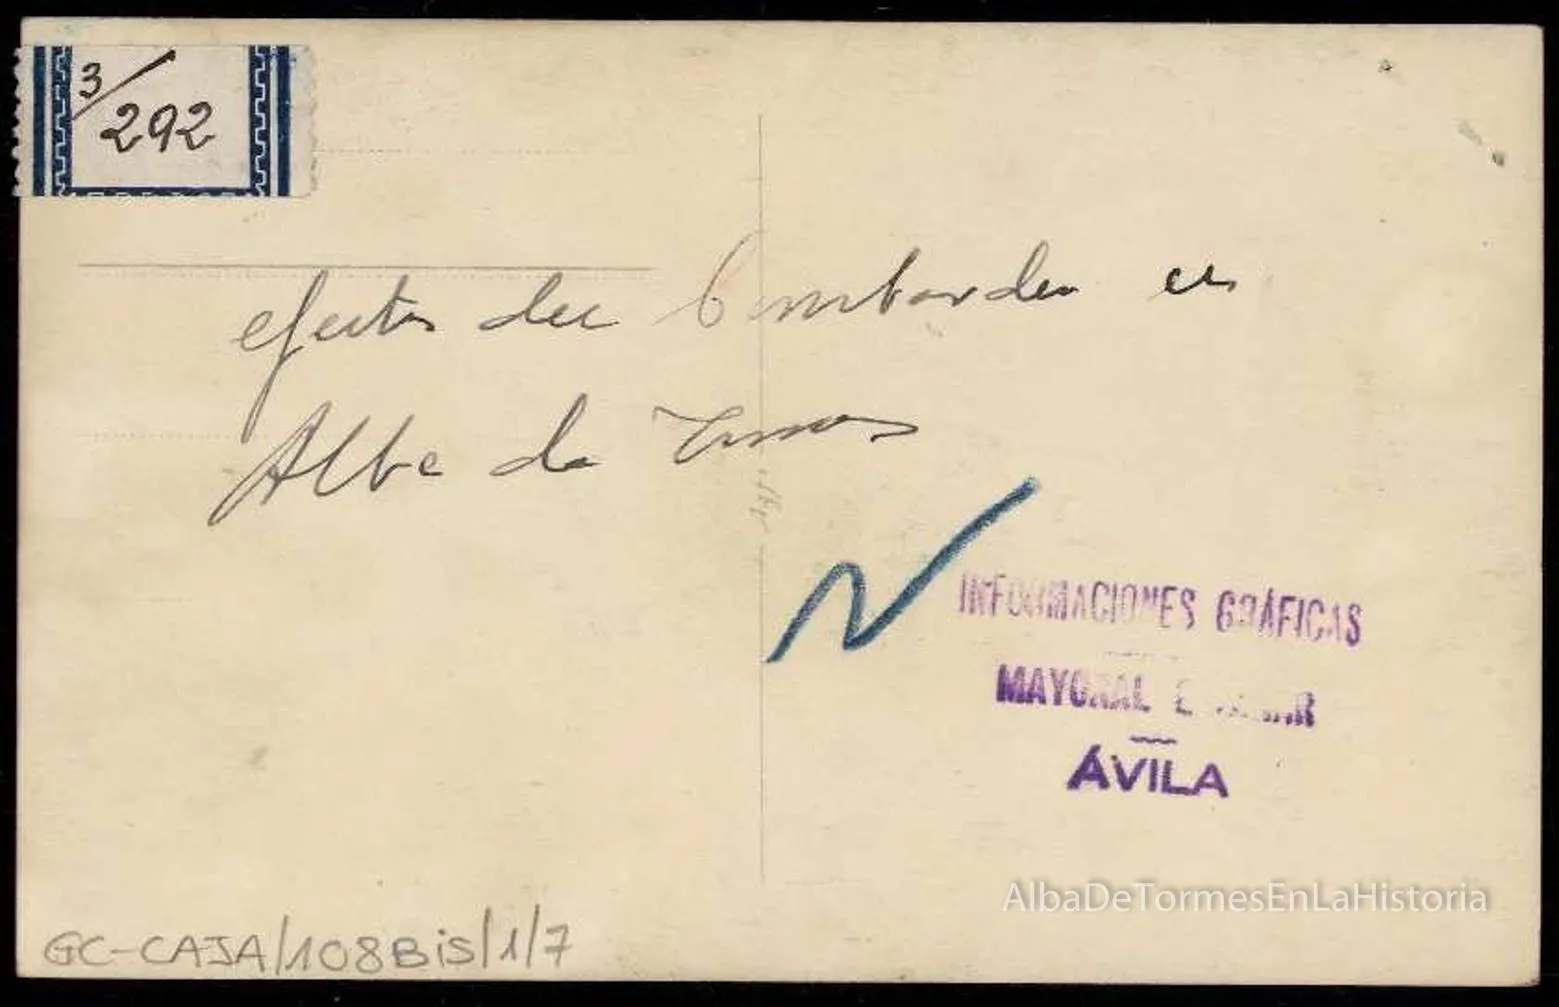 3/292
efectos del bombardeo en
Alba de Tormes
INFORMACIONES GRÁFICAS
MAYORAL
ÁVILA
AlbaDeTormesEnLaHistoria
GC-CAJA/108Bis/1/7